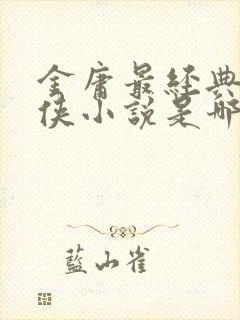 金庸最經典
俠小說是哪
藍山雀